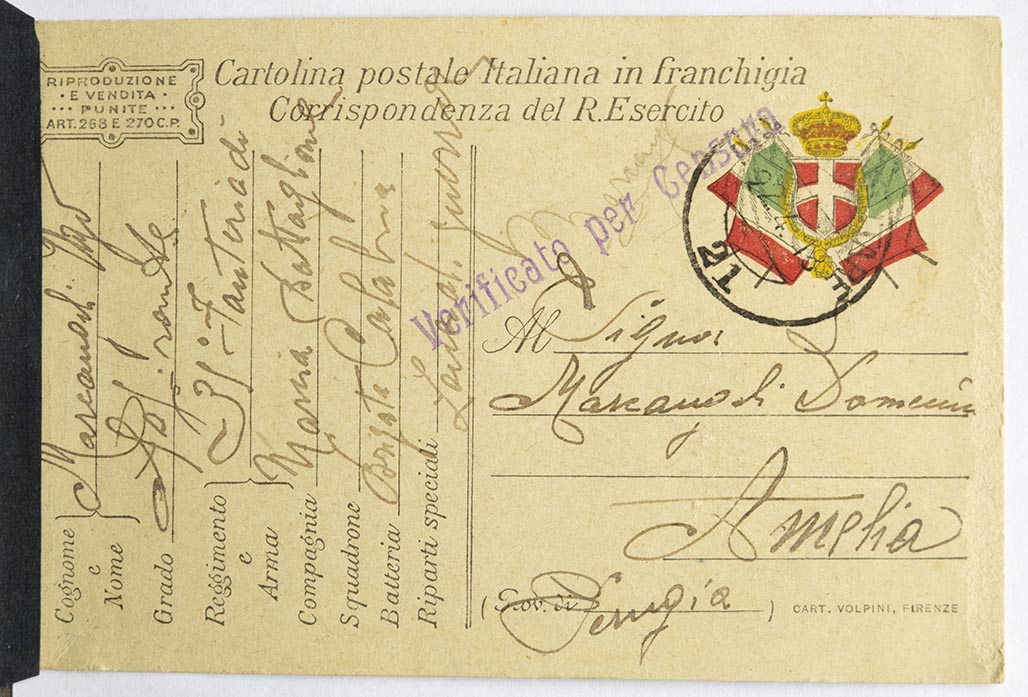 RIPRODUZIONE
E VENDITA
PUNITE
ART. 268 E 270 C.P.
Cartolina postale Italiana in franchigia
Corrispondenza del R. Esercito
Verificato per Censura
21
Cognome e Nome Marcanodi Ugo
Grado Aspirante
Reggimento e Arma Fanteria di
Compagnia Marcia Battaglione
Squadrone
Batteria Brigata Calabria
Riparti speciali Zona di guerra
Al Signor
Marcanodi Domenico
Amelia
(Prov. di Perugia)
CART. VOLPINI, FIRENZE